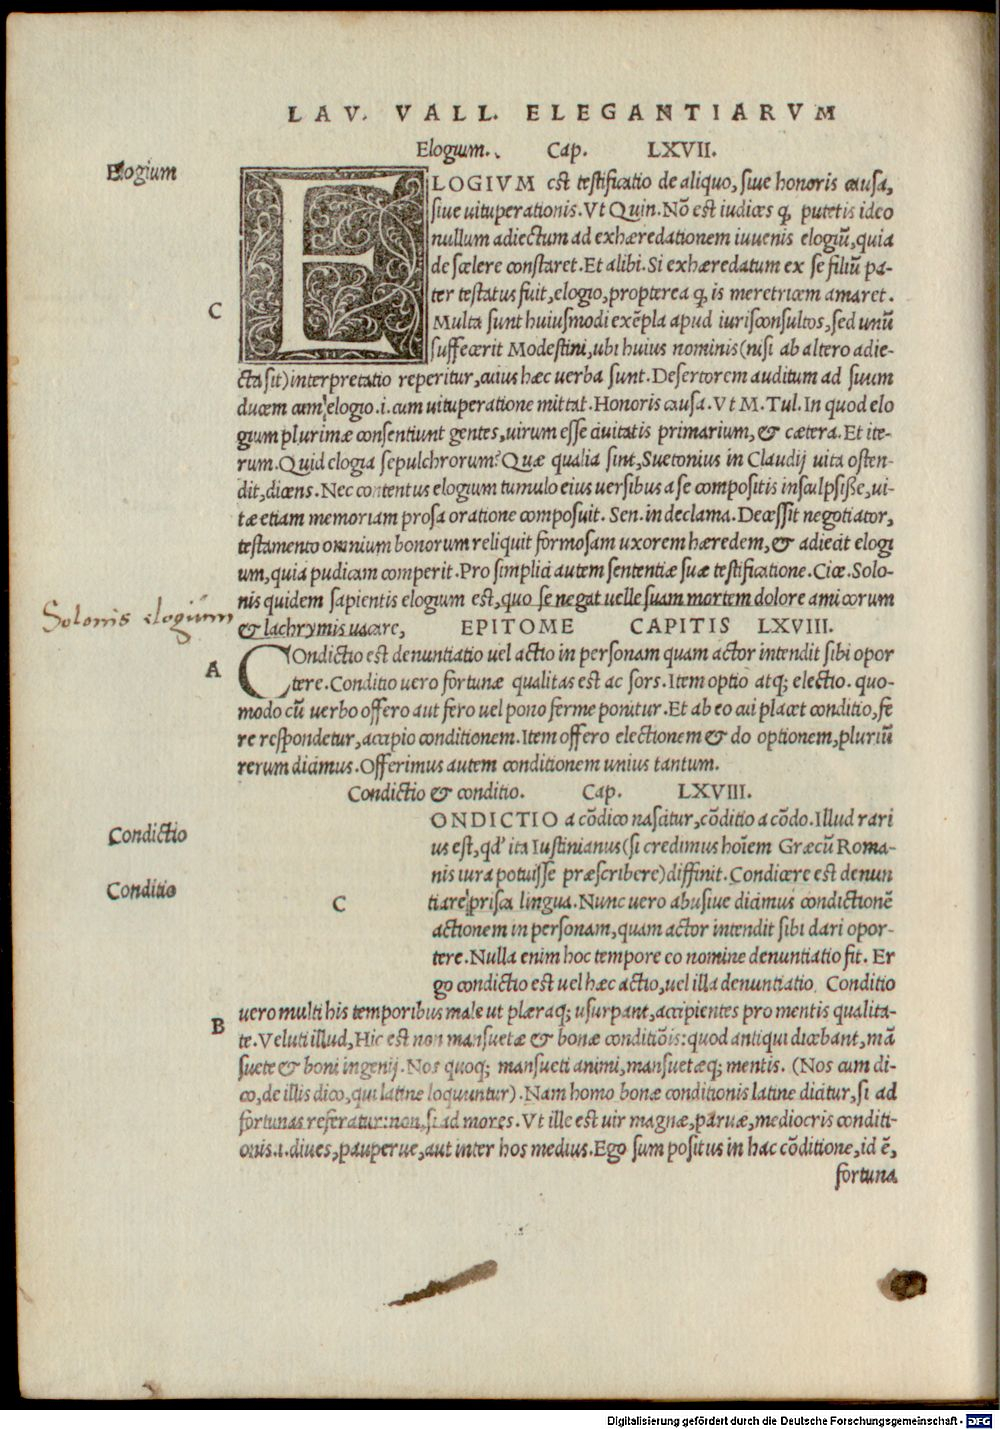 LAV. VALL. ELEGANTIARVM
Elogium. Cap. LXVII.
Elogium
ELOGIVM est testificatio de aliquo, siue honoris causa,
siue uituperationis. Vt Quin. Nõ est iudices ꝙ putetis ideo
nullum adiectum ad exhæredationem iuuenis elogiũ, quia
de scelere constaret. Et alibi. Si exhæredatum ex se filiũ pa-
ter testatus fuit, elogio, propterea ꝙ is meretricem amaret.
C
Multa sunt huiusmodi exẽpla apud iurisconsultos, sed unũ
suffecerit Modestini, ubi huius nominis (nisi ab altero adie-
cta sit) interpretatio reperitur, cuius hæc uerba sunt. Desertorem auditum ad suum
ducem cum elogio .i. cum uituperatione mittat. Honoris causa. Vt M. Tul. In quod elo
gium plurimæ consentiunt gentes, uirum esse ciuitatis primarium, & cætera. Et ite-
rum. Quid elogia sepulchrorum? Quæ qualia sint, Suetonius in Claudij uita osten-
dit, dicens. Nec contentus elogium tumulo eius uersibus a se compositis insculpsisse, ui-
tæ etiam memoriam prosa oratione composuit. Sen. in declama. Decessit negotiator,
testamento omnium bonorum reliquit formosam uxorem hæredem, & adiecit elogi
um, quia pudicam comperit. Pro simplici autem sententiæ suæ testificatione. Cice. Solo-
nis quidem sapientis elogium est, quo se negat uelle suam mortem dolore amicorum
Solonis elogium
& lachrymis uacare, EPITOME CAPITIS LXVIII.
A
COndictio est denuntiatio uel actio in personam quam actor intendit sibi opor
tere. Conditio uero fortunæ qualitas est ac sors. Item optio atq; electio. quo-
modo cũ uerbo offero aut fero uel pono ferme ponitur. Et ab eo cui placet conditio, fe
re respondetur, accipio conditionem. Item offero electionem & do optionem, pluriũ
rerum dicimus. Offerimus autem conditionem unius tantum.
Condictio & conditio. Cap. LXVIII.
Condictio
ONDICTIO a cõdico nascitur, cõditio a cõdo. Illud rari
us est, qd' ita Iustinianus (si credimus hoĩem Græcũ Roma-
Conditio
nis iura potuisse præscribere) diffinit. Condicere est denun
C
tiare prisca lingua. Nunc uero abusiue dicimus condictionẽ
actionem in personam, quam actor intendit sibi dari opor-
tere. Nulla enim hoc tempore eo nomine denuntiatio fit. Er
go condictio est uel hæc actio, uel illa denuntiatio. Conditio
uero multi his temporibus male ut pleraq; usurpant, accipientes pro mentis qualita-
B
te. Veluti illud, Hic est non mansuetæ & bonæ conditiõis: quod antiqui dicebant, mã
suete & boni ingenij. Nos quoq; mansueti animi, mansuetæq; mentis. (Nos cum di-
co, de illis dico, qui latine loquuntur). Nam homo bonæ conditionis latine dicitur, si ad
fortunas referatur: non, si ad mores. Vt ille est uir magnæ, paruæ, mediocris conditi-
onis .i. diues, pauperue, aut inter hos medius. Ego sum positus in hac cõditione, id ẽ,
fortuna
Digitalisierung gefördert durch die Deutsche Forschungsgemeinschaft - DFG